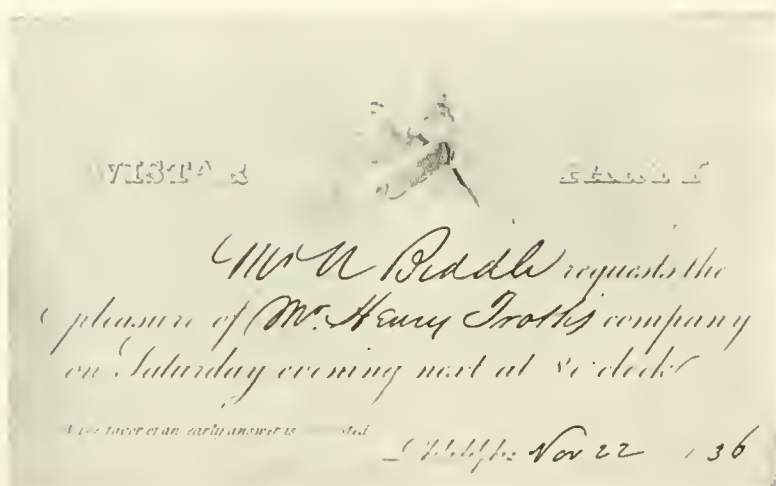 WISTAR PARTY
Mr N Biddle requests the
pleasure of Mr. Henry Troth's company
on Saturday evening next at 8 o'clock
The favor of an early answer is
Philada Nov 22 1836